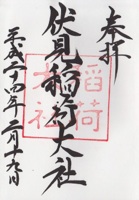 奉拝
伏見稲荷大社
平成二十四年二月十六日
稲荷
本社